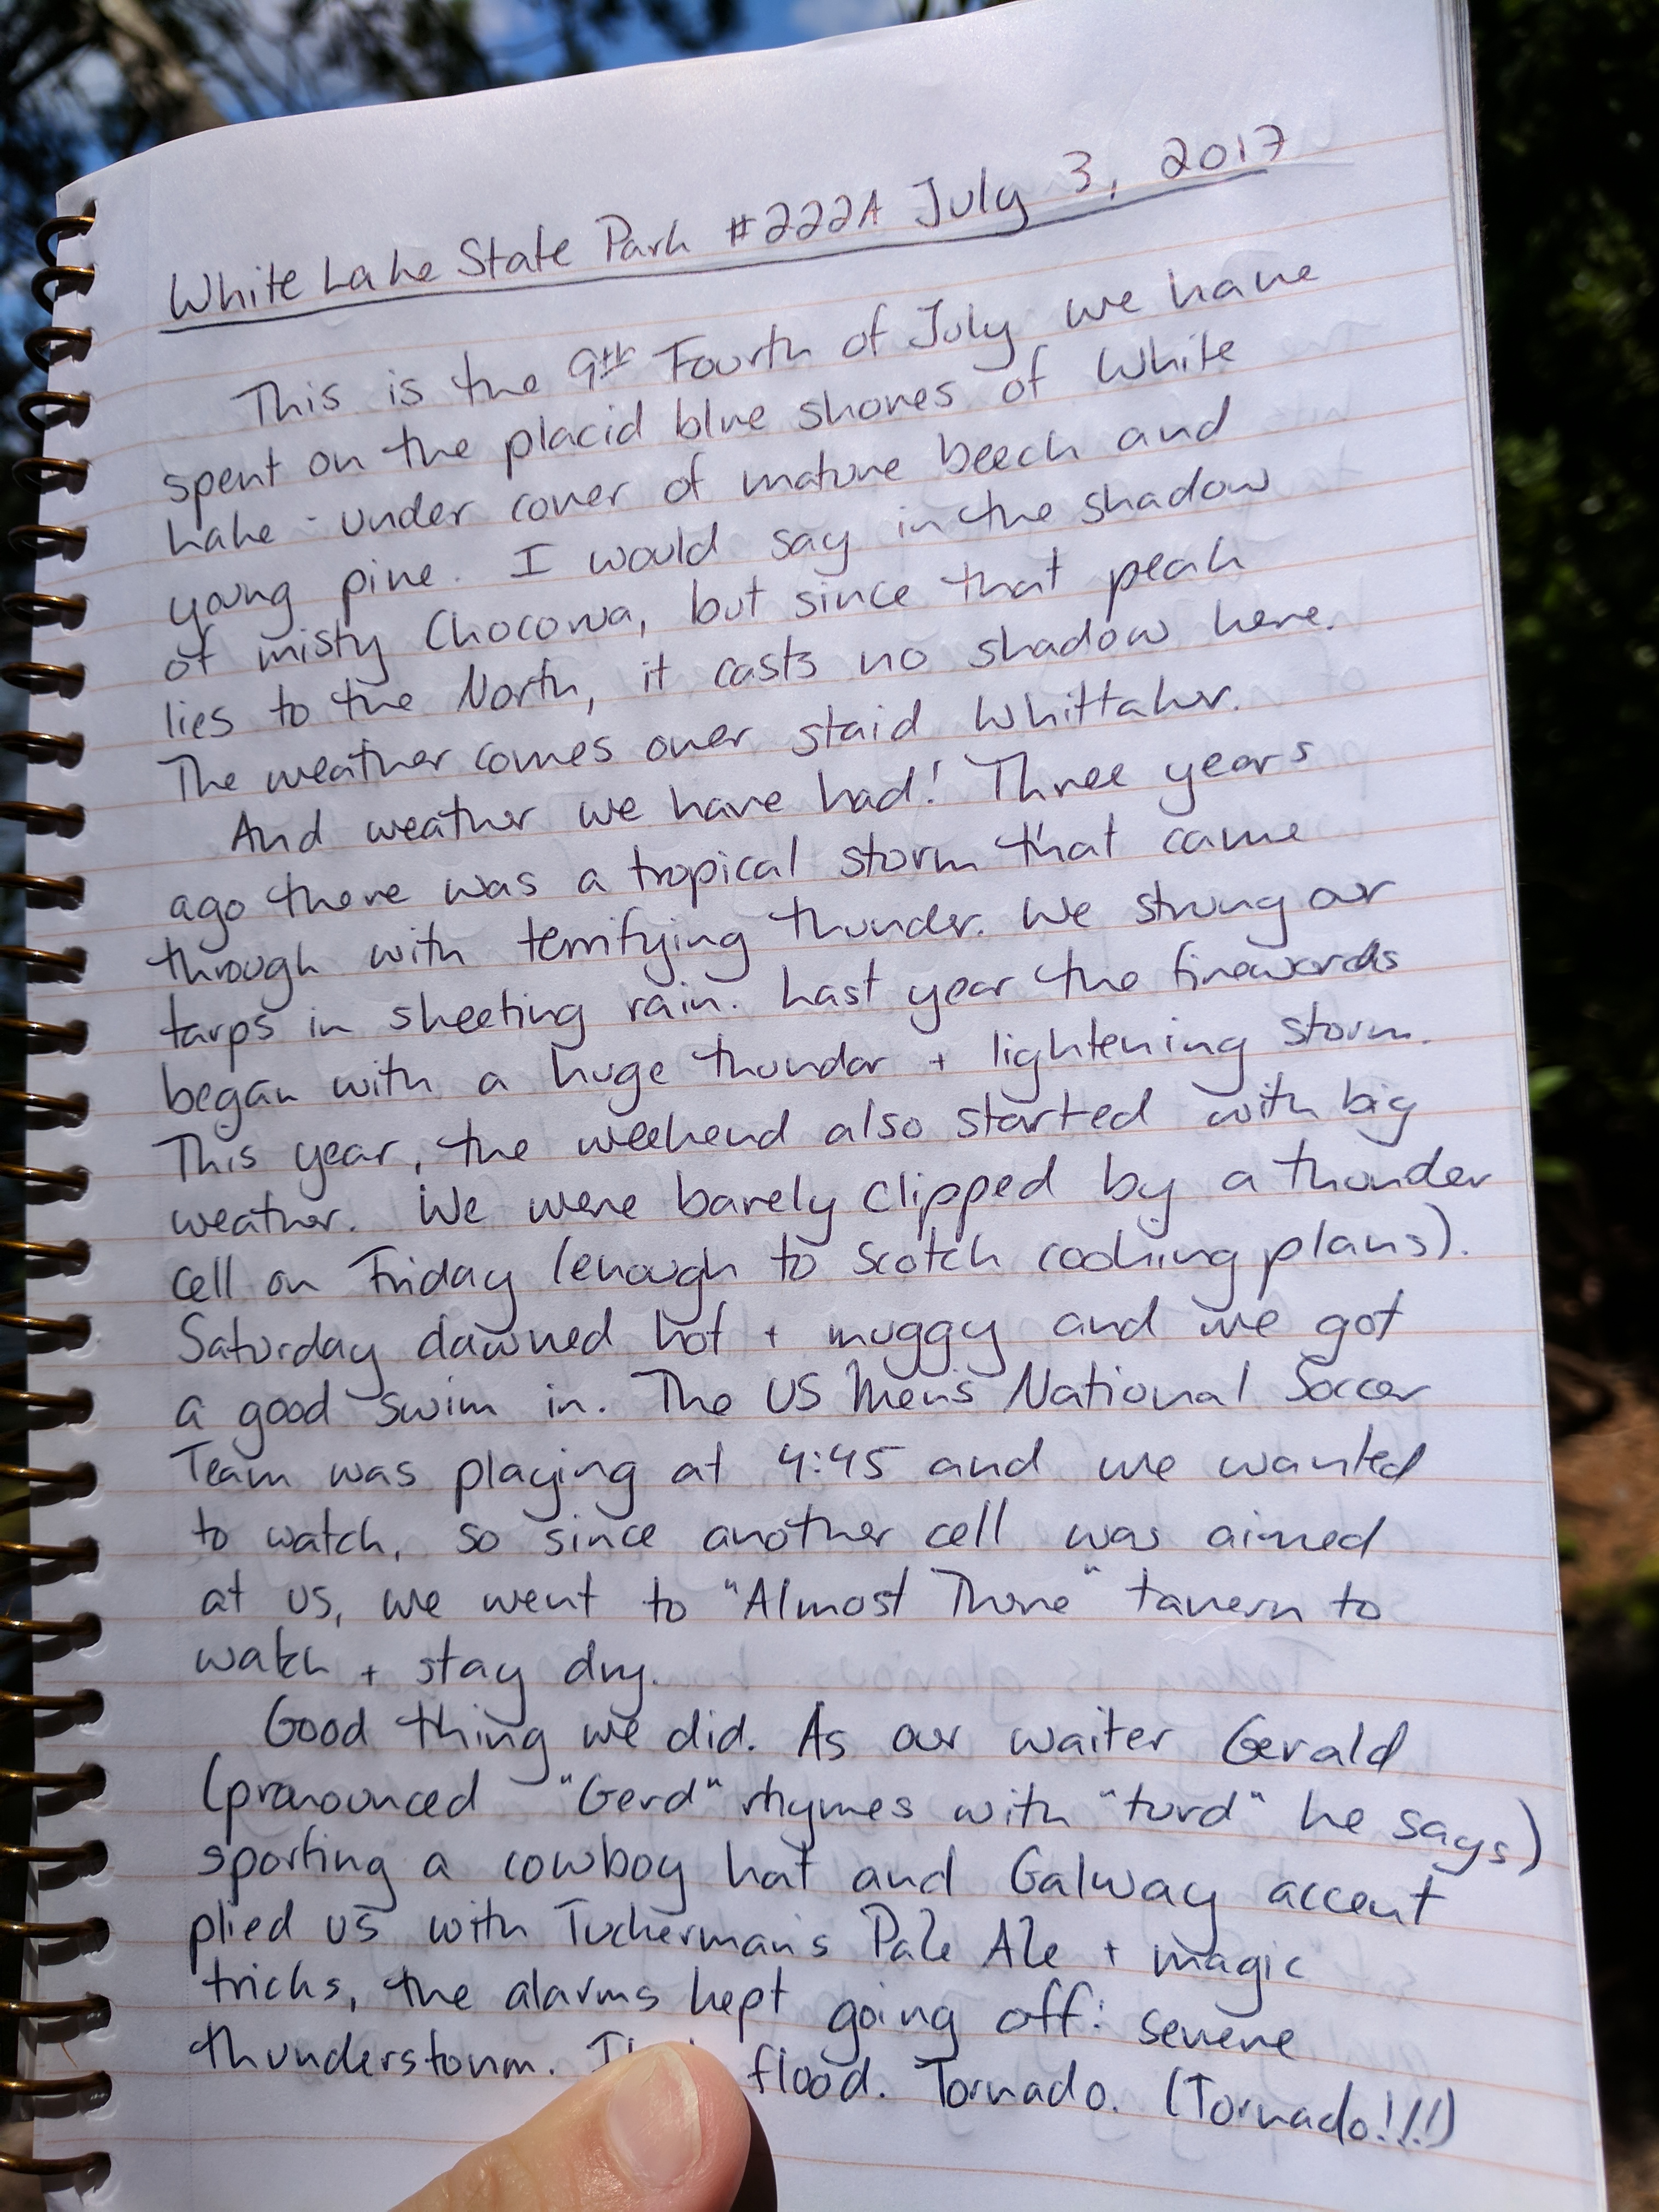 White Lake State Park #222A July 3, 2017
This is the 9th Fourth of July we have
spent on the placid blue shores of White
Lake - under cover of mature beech and
young pine. I would say in the shadow
of misty Chocorua, but since that peak
lies to the North, it casts no shadow here.
The weather comes over staid Whittaker.
And weather we have had! Three years
ago there was a tropical storm that came
through with terrifying thunder. We strung our
tarps in sheeting rain. Last year the fireworks
began with a huge thunder + lightening storm.
This year, the weekend also started with big
weather. We were barely clipped by a thunder
cell on Friday (enough to scotch cooking plans).
Saturday dawned hot + muggy and we got
a good swim in. The US Men's National Soccer
Team was playing at 4:45 and we wanted
to watch, so since another cell was aimed
at us, we went to "Almost There" tavern to
watch + stay dry.
Good thing we did. As our waiter Gerald
(pronounced "Gerd" rhymes with "turd" he says)
sporting a cowboy hat and Galway accent
plied us with Tuckerman's Pale Ale + magic
tricks, the alarms kept going off: severe
thunderstorm. flood. Tornado. (Tornado!!!)